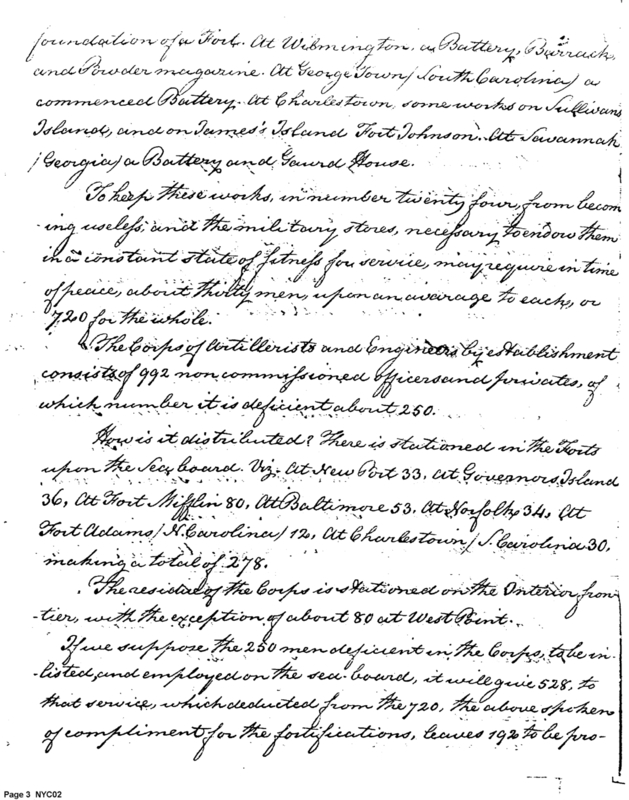 foundation of a Fort. At Wilmington, a Battery, Barrack,
and Powder magazine. At George Town / South Carolina / a
commenced Battery. At Charlestown, some works on Sullivans
Island, and on James's Island Fort Johnson. At Savannah
/ Georgia / a Battery and Gaurd House.
To keep these works, in number twenty four, from becom
-ing useless; and the military stores, necessary to endow them
in a constant state of fitness for service, may require in time
of peace, about thirty men, upon an avarage to each, or
720 for the whole.
The Corps of Artillerists and Engineers by establishment
consists of 992 non commissioned officers and privates, of
which number it is deficient about 250.
How is it distributed? There is stationed in the Forts
upon the Sea board. Viz. At New Port 33, at Governors Island
36, At Fort Mifflin 80, At Baltimore 53, At Norfolk 34, At
Fort Adams / N. Carolina / 12, At Charlestown / S. Carolina 30,
making a total of 278.
The residue of the Corps is stationed on the Interior fron
-tier, with the exception of about 80 at West Point.
If we suppose the 250 men deficient in the Corps, to be in-
-listed, and employed on the sea-board, it will give 528, to
that service, which deducted from the 720, the above spoken
of compliment for the fortifications, leaves 192 to be pro-
Page 3 NYC02